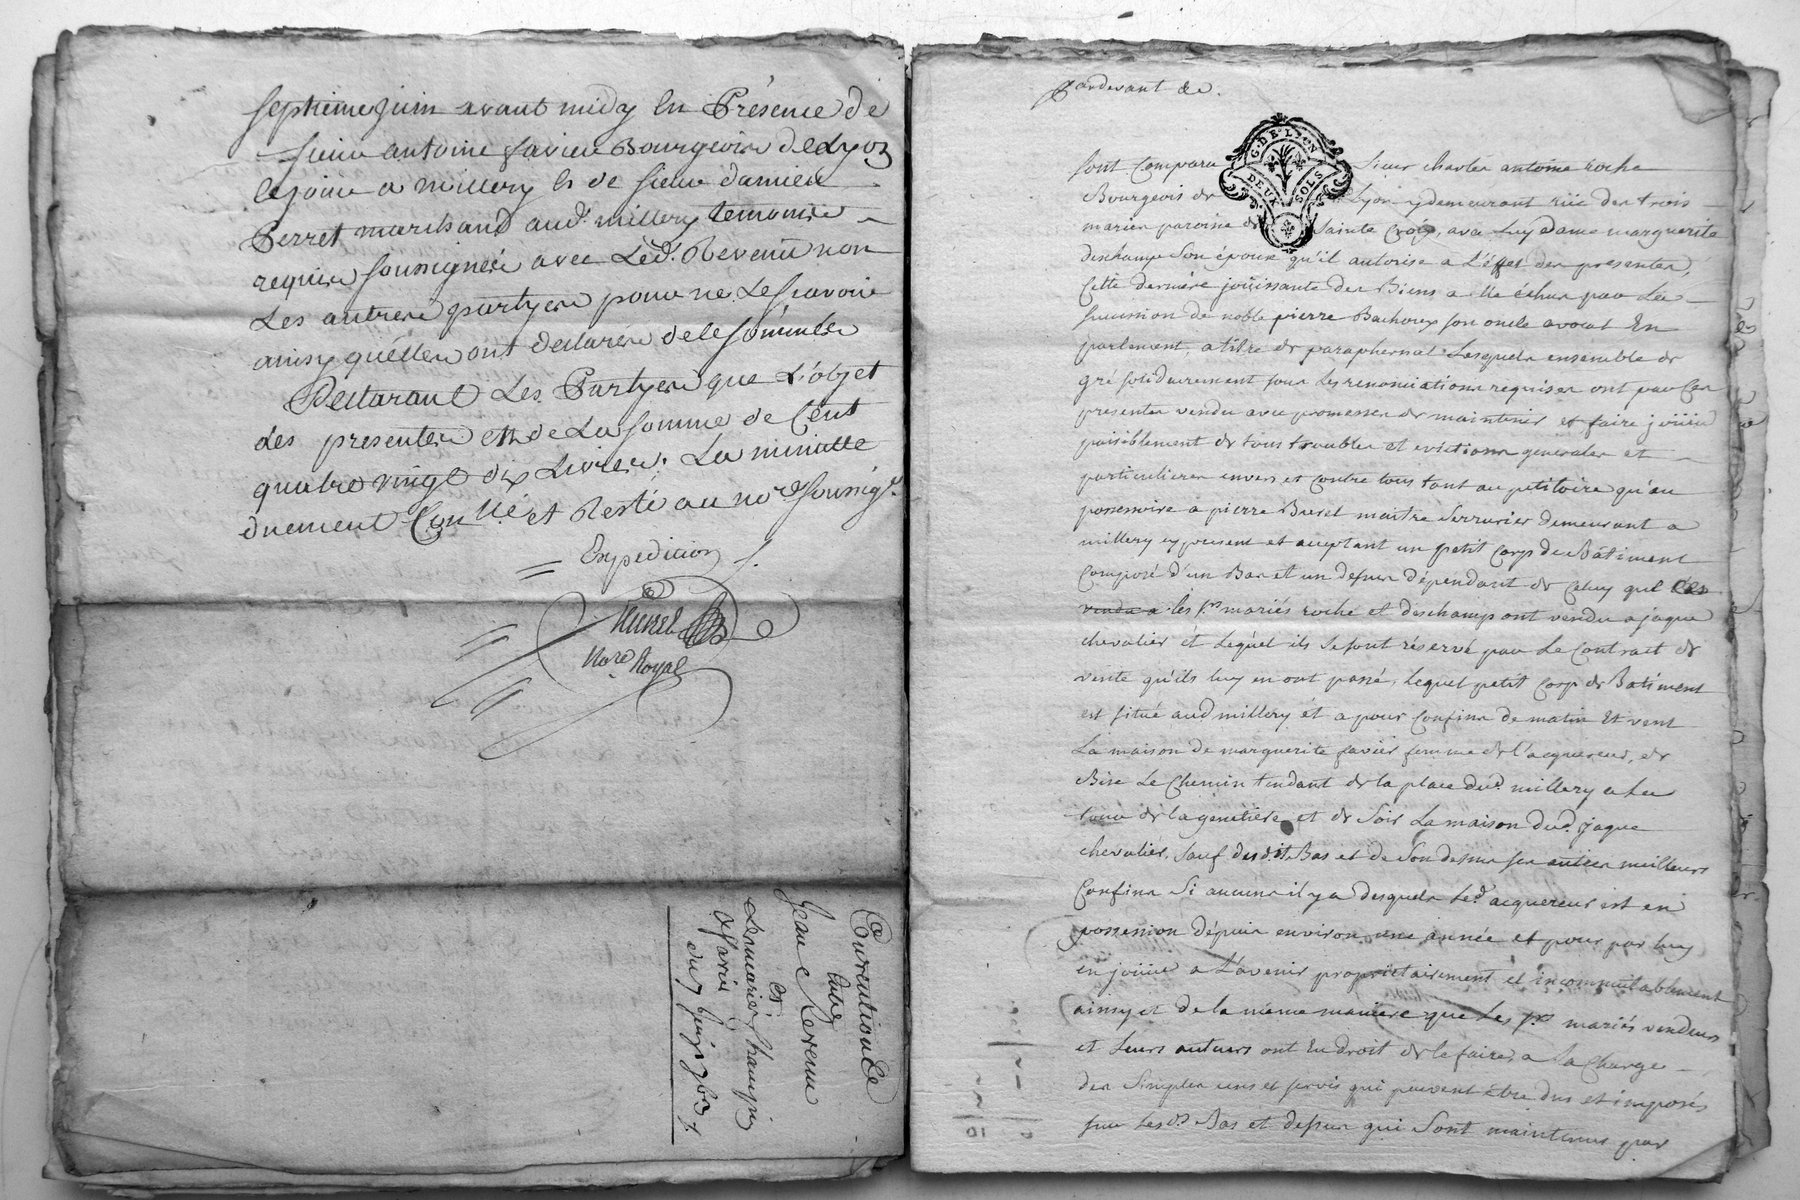 septieme juin avant midy En Présence de
sieur antoine favier Bourgeois de Lyon
a millery Et de sieur damien
Perret marchand aud. millery temoins
requis soussignés avec Led. Revenu non
Les autres partyes pour ne Le scavoir
ainsy qu'elles ont declaré de le sommées
Declarant Les Partyes que L'objet
des presentes est de La somme de Cent
quatre vingt dix Livres; La minutte
duement Conllé et Resté au nore. soussigé.
Expedition
Nore Royal
et
Jean Revenu
pardevant &c.
G. DE LYON
DEUX SOLS
sont Comparu Sieur charles antoine roche
Bourgeois de Lyon y demeurant rüe des trois
maries paroisse de Sainte Croix, avec Luy dame marguerite
deschamps Son épouse qu'il autorise a L'éffet des presentes,
Cette derniére joüissante des Biens a Elle échus par La
succession de noble pierre Bachoux son oncle avocat En
parlement, a titre de paraphernal Lesquels ensemble de
gré solidairement sous les renonciations requises ont par Ces
presentes vendu avec promesses de maintenir et faire joüir
paisiblement de tous troubles et evictions generales et
particulieres envers et contre tous tant au petitoire qu'au
possessoire a pierre Buret maitre Serrurier demeurant a
millery cy present et acceptant un petit Corps de Bâtiment
Composé d'un Bas et un dessus dépendant de Celuy que
vendu a les srs mariés roche et deschamps ont vendu a jaque
chevalier et Lequel ils se sont réservé par Le Contract de
vente qu'ils luy en ont passé, Lequel petit Corps de Batiment
est situé aud millery et a pour Confins de matin Et vent
La maison de marguerite favier femme de l'acquereur, de
Bise Le Chemin tendant de la place dud. millery a La
de la genetiére et de Soir La maison dud. jaque
chevalier, sauf desdit Bas et de Son dessus ses autres meilleurs
Confins Si aucuns il y a desquels Led. acquereur est en
possession dépuis environ une année et pour par luy
en joüir a L'avenir proprietairement et incommutablement
ainsy et de la même maniere que Les srs mariés vendeurs
et Leurs auteurs ont Eu droit de le faire, a La Charge
des Simples cens et servis qui peuvent etre dus et imposés
sur Lesd. Bas et dessus qui Sont maintenus par